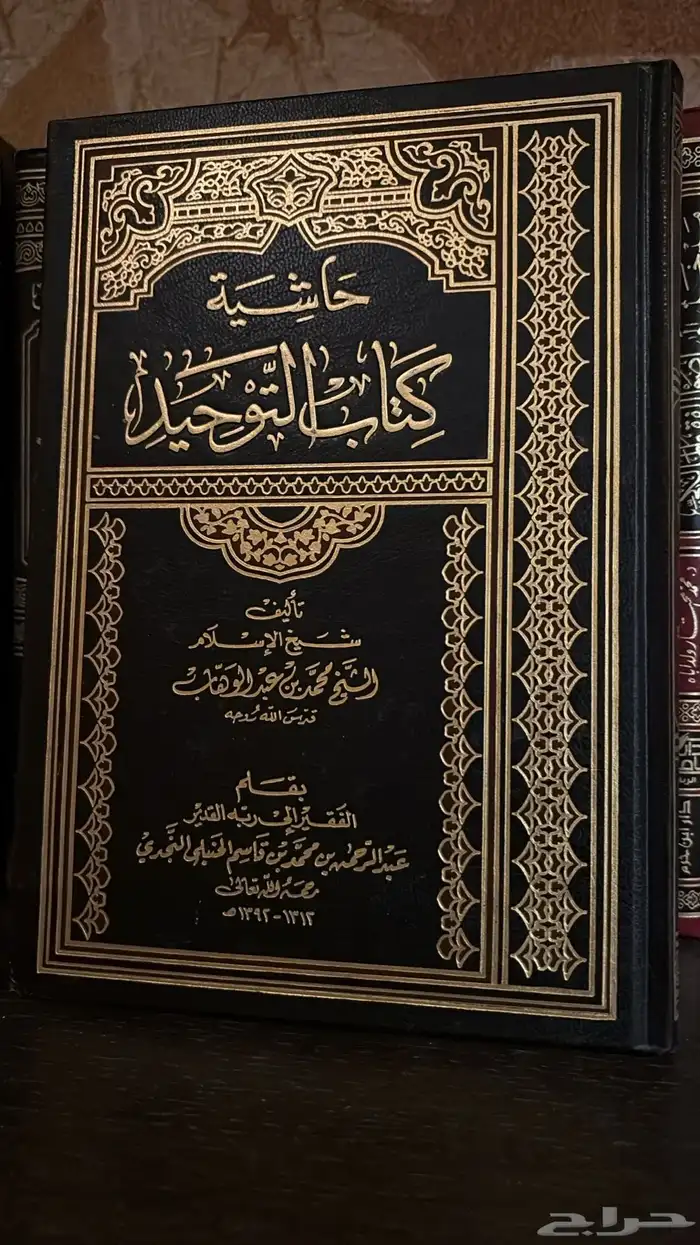 حَاشِيَة
كِتَابُ التَّوْحِيدِ
تأليف
شيخ الإسلام
الشيخ محمد بن عبد الوهاب
قدس الله روحه
بقلم
الفقير إلى ربه القدير
عبد الرحمن بن محمد بن قاسم الحنبلي النجدي
رحمه الله تعالى
١٣١٢-١٣٩٢هـ
دار ابن حزم
حراج